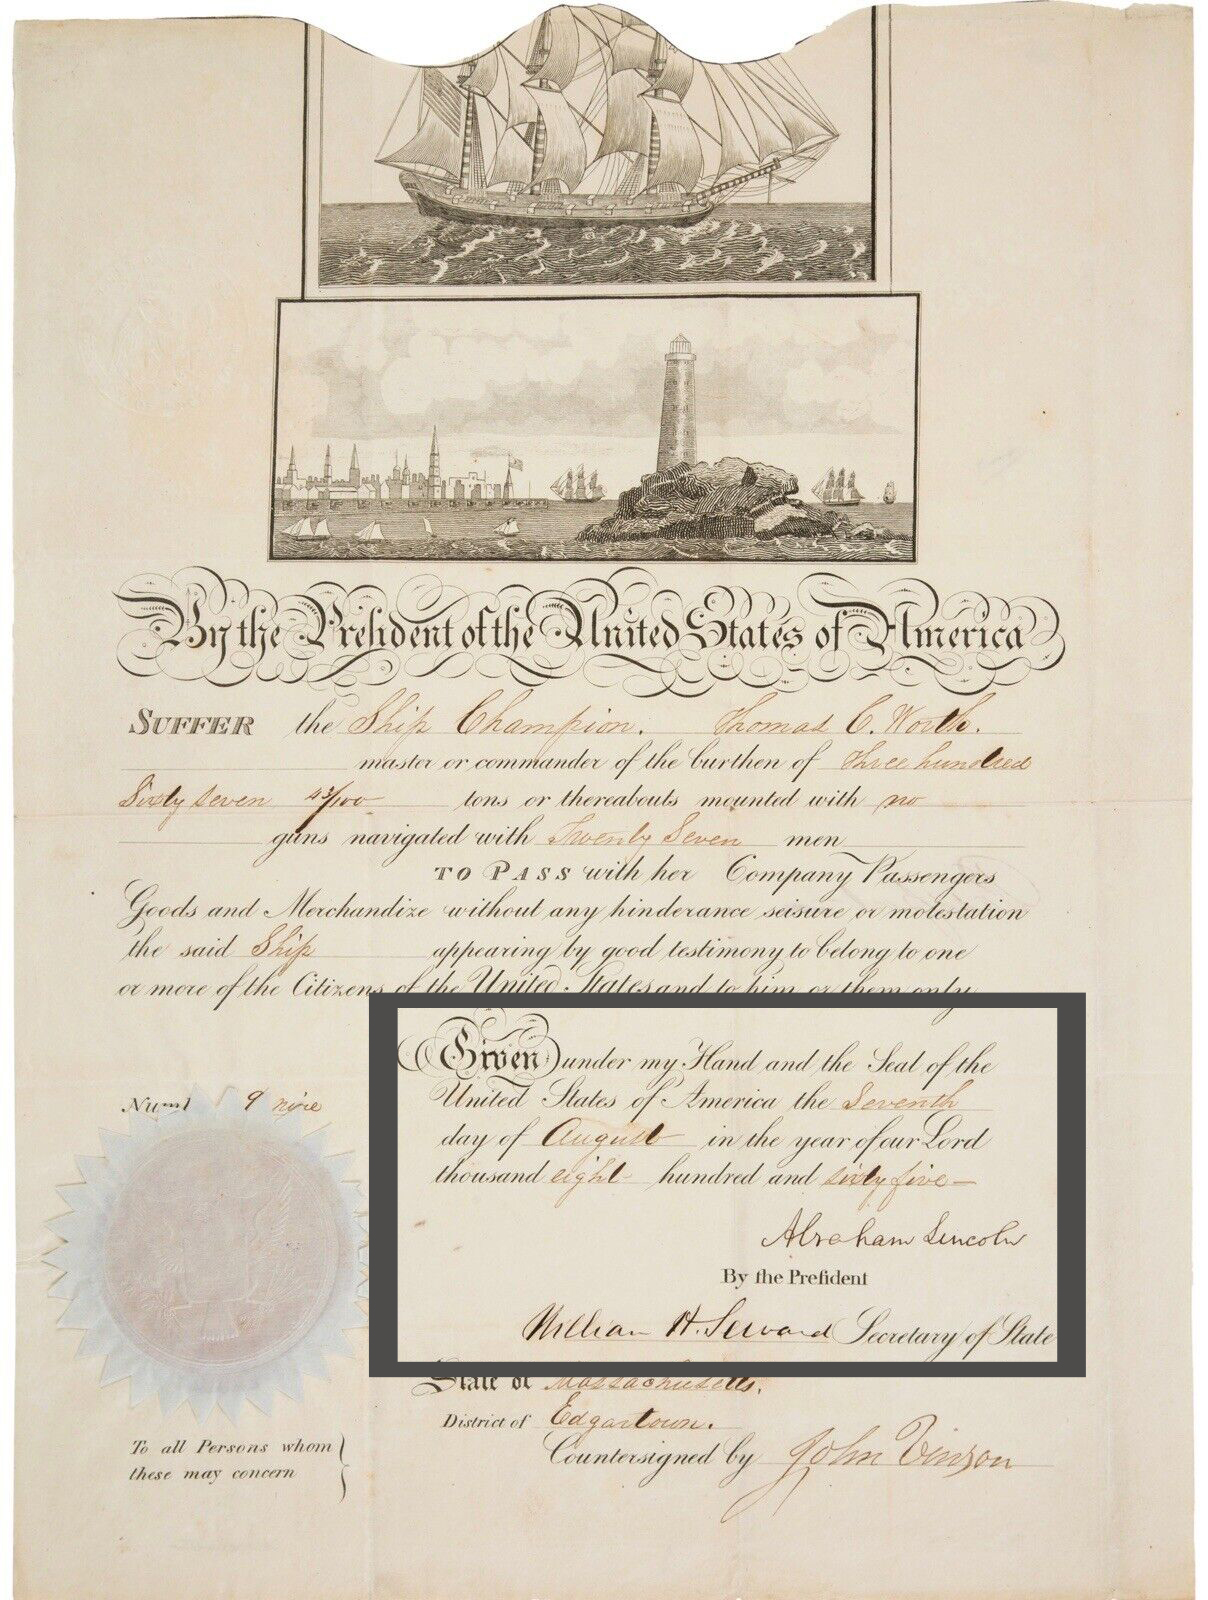 By the President of the United States of America
SUFFER the Ship Champion. Thomas C. Worth.
master or commander of the burthen of Three hundred
Sixty seven 43/100 tons or thereabouts mounted with no
guns navigated with Twenty Seven men
TO PASS with her Company Passengers
Goods and Merchandize without any hinderance seisure or molestation
the said Ship appearing by good testimony to belong to one
or more of the Citizens of the United States and to him or them only
Given under my Hand and the Seal of the
United States of America the Seventh
day of August in the year of our Lord
thousand eight hundred and sixty five
Abraham Lincoln
By the President
William H. Seward Secretary of State
9 nine
State of Massachusetts.
District of Edgartown.
Countersigned by John Vinson
To all Persons whom
these may concern